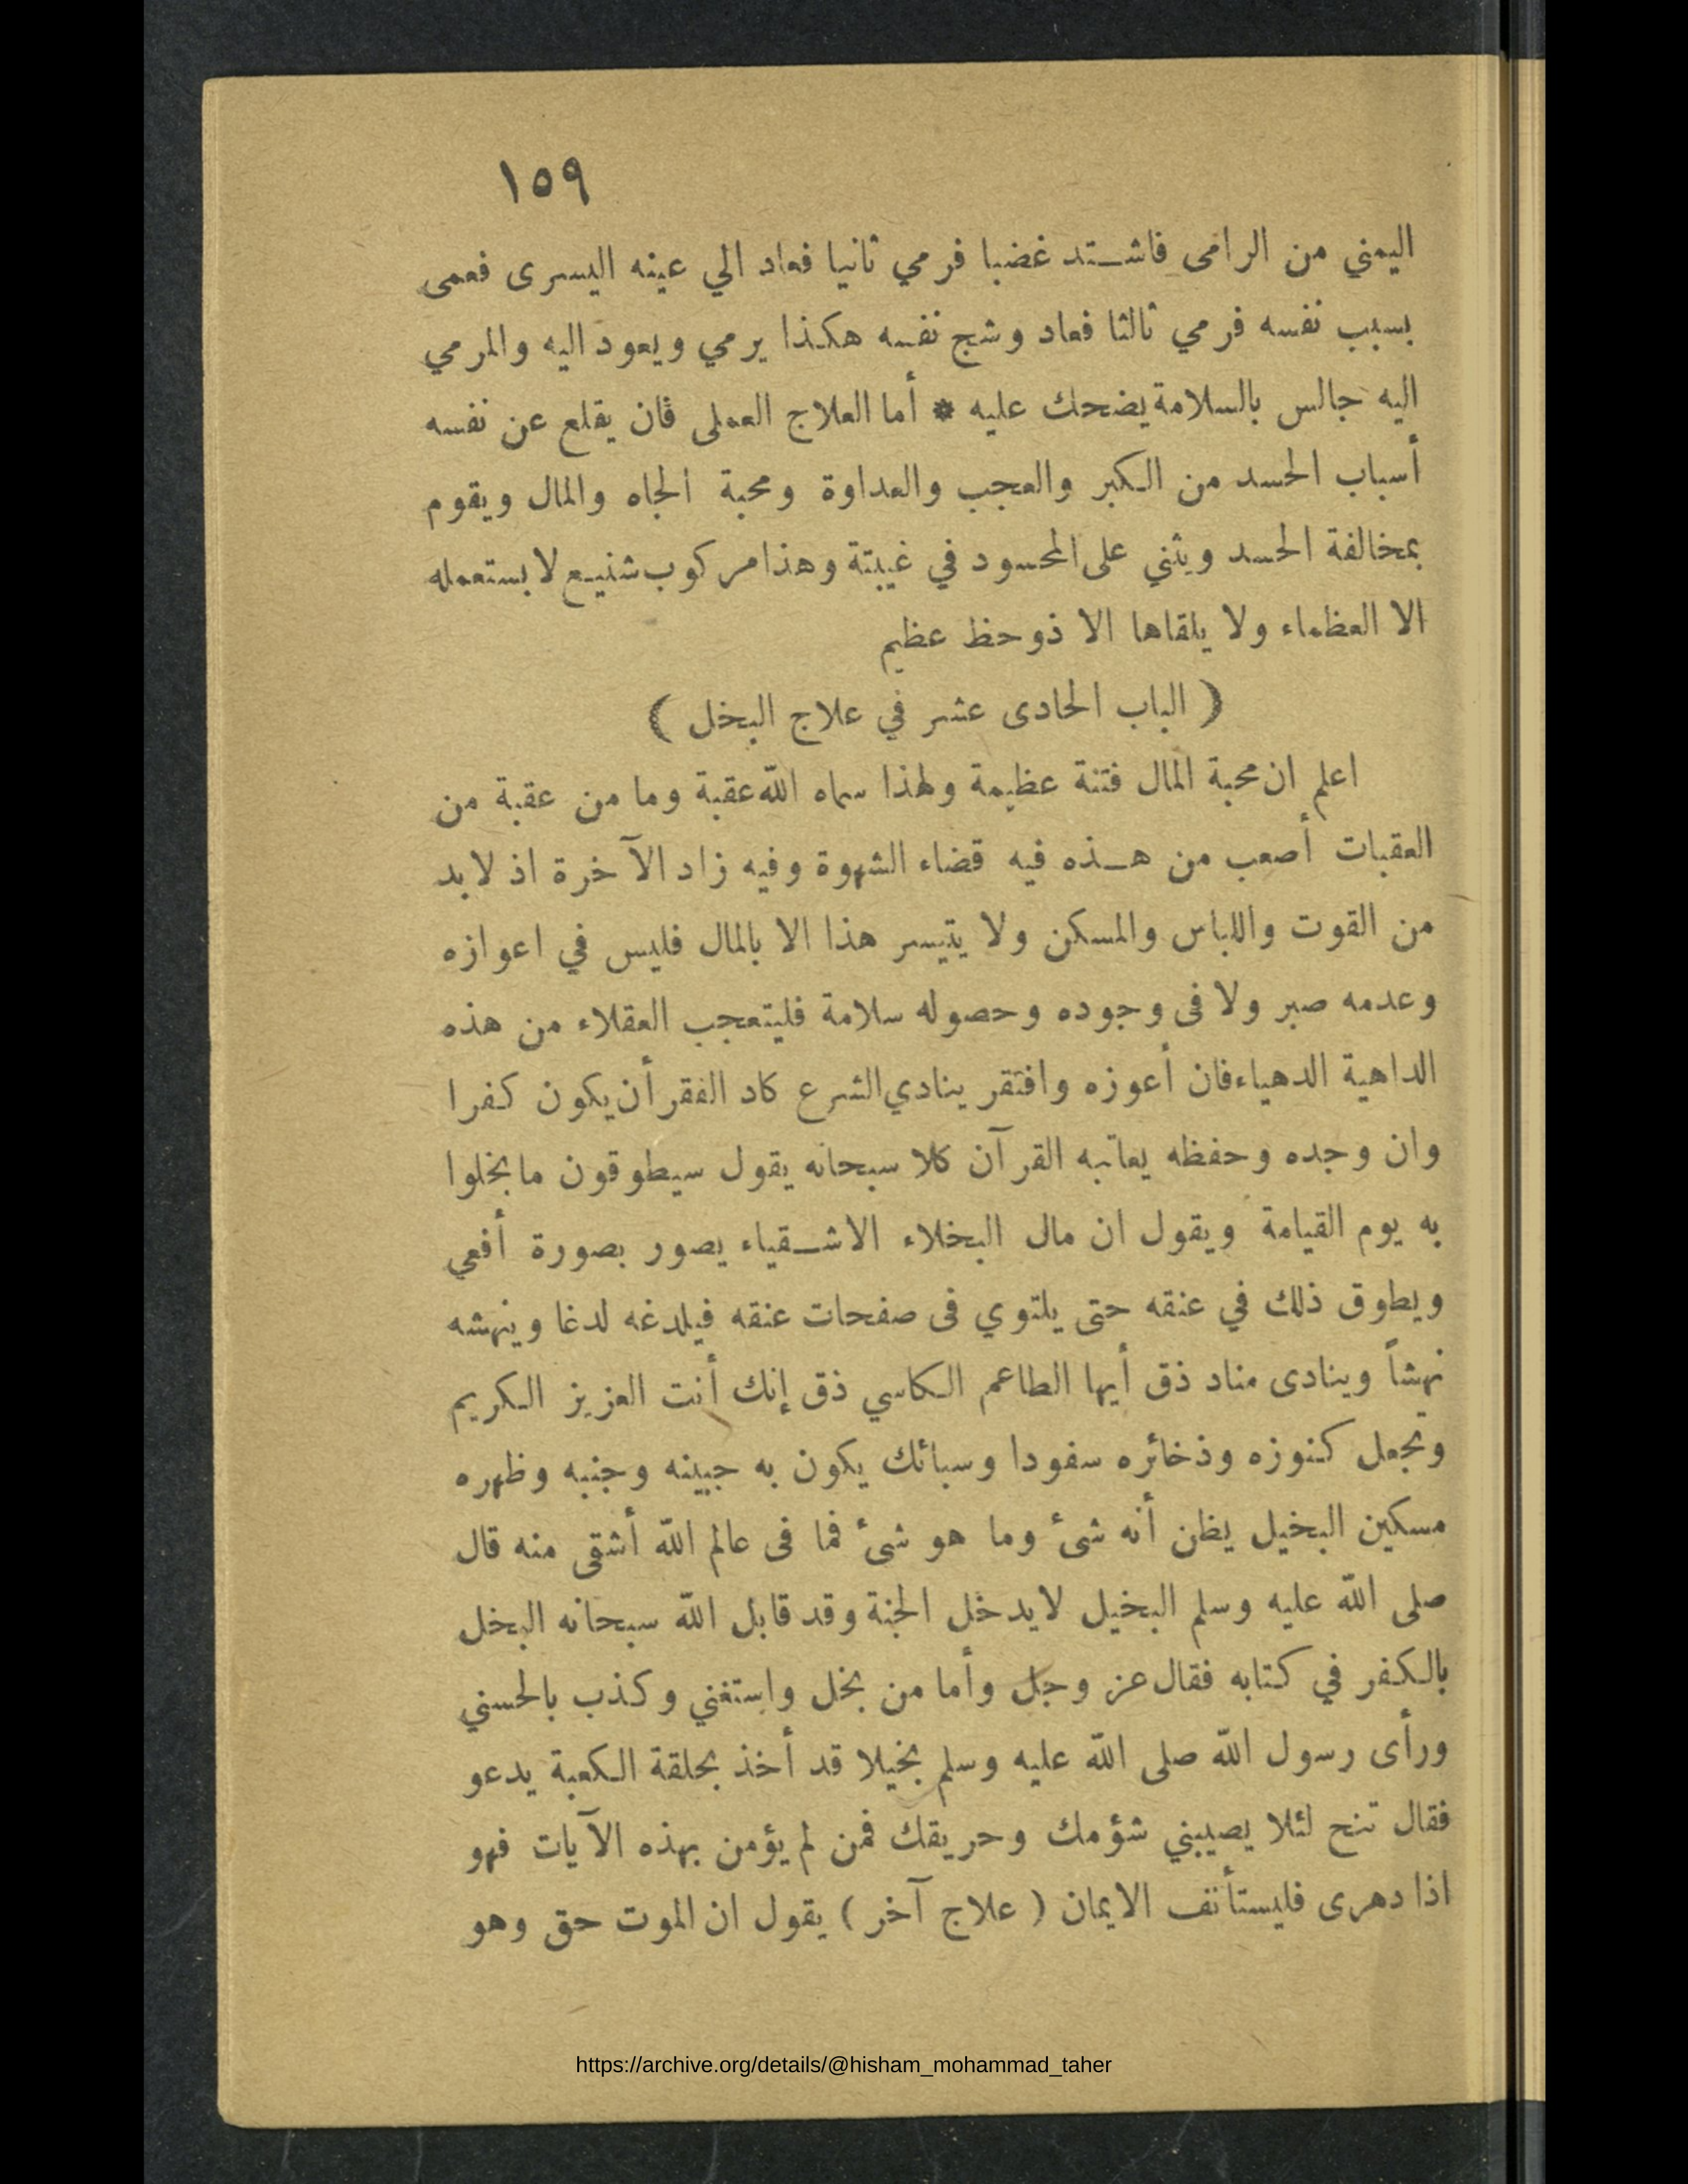 ١٥٩
اليمني من الرامى فاشتد غضبا فرمي ثانيا فعاد الي عينه اليسرى فعمى
بسبب نفسه فرمي ثالثا فعاد وشج نفسه هكذا يرمي ويعود اليه والمرمي
اليه جالس بالسلامة يضحك عليه * أما العلاج العملى فان يقلع عن نفسه
أسباب الحسد من الكبر والعجب والعداوة ومحبة الجاه والمال ويقوم
بمخالفة الحسد ويثني على المحسود في غيبتة وهذا مركوب شنيع لا يستعمله
الا العظماء ولا يلقاها الا ذو حظ عظيم
( الباب الحادى عشر في علاج البخل )
اعلم ان محبة المال فتنة عظيمة ولهذا سماه الله عقبة وما من عقبة من
العقبات أصعب من هذه فيه قضاء الشهوة وفيه زاد الآخرة اذ لا بد
من القوت واللباس والمسكن ولا يتيسر هذا الا بالمال فليس في اعوازه
وعدمه صبر ولا فى وجوده وحصوله سلامة فليتعجب العقلاء من هذه
الداهية الدهياء فان أعوزه وافتقر ينادي الشرع كاد الفقر أن يكون كفرا
وان وجده وحفظه يعاتبه القرآن كلا سبحانه يقول سيطوقون ما بخلوا
به يوم القيامة ويقول ان مال البخلاء الاشقياء يصور بصورة أفعي
ويطوق ذلك في عنقه حتى يلتوي فى صفحات عنقه فيلدغه لدغا وينهشه
نهشاً وينادى مناد ذق أيها الطاعم الكاسي ذق إنك أنت العزيز الكريم
وتجعل كنوزه وذخائره سفودا وسبائك يكون به جبينه وجنبه وظهره
مسكين البخيل يظن أنه شئ وما هو شئ فما فى عالم الله أشقى منه قال
صلى الله عليه وسلم البخيل لا يدخل الجنة وقد قابل الله سبحانه البخل
بالكفر في كتابه فقال عز وجل وأما من بخل واستغني وكذب بالحسني
ورأى رسول الله صلى الله عليه وسلم بخيلا قد أخذ بحلقة الكعبة يدعو
فقال تنح لئلا يصيبني شؤمك وحريقك فمن لم يؤمن بهذه الآيات فهو
اذا دهرى فليستأنف الايمان ( علاج آخر ) يقول ان الموت حق وهو
https://archive.org/details/@hisham_mohammad_taher